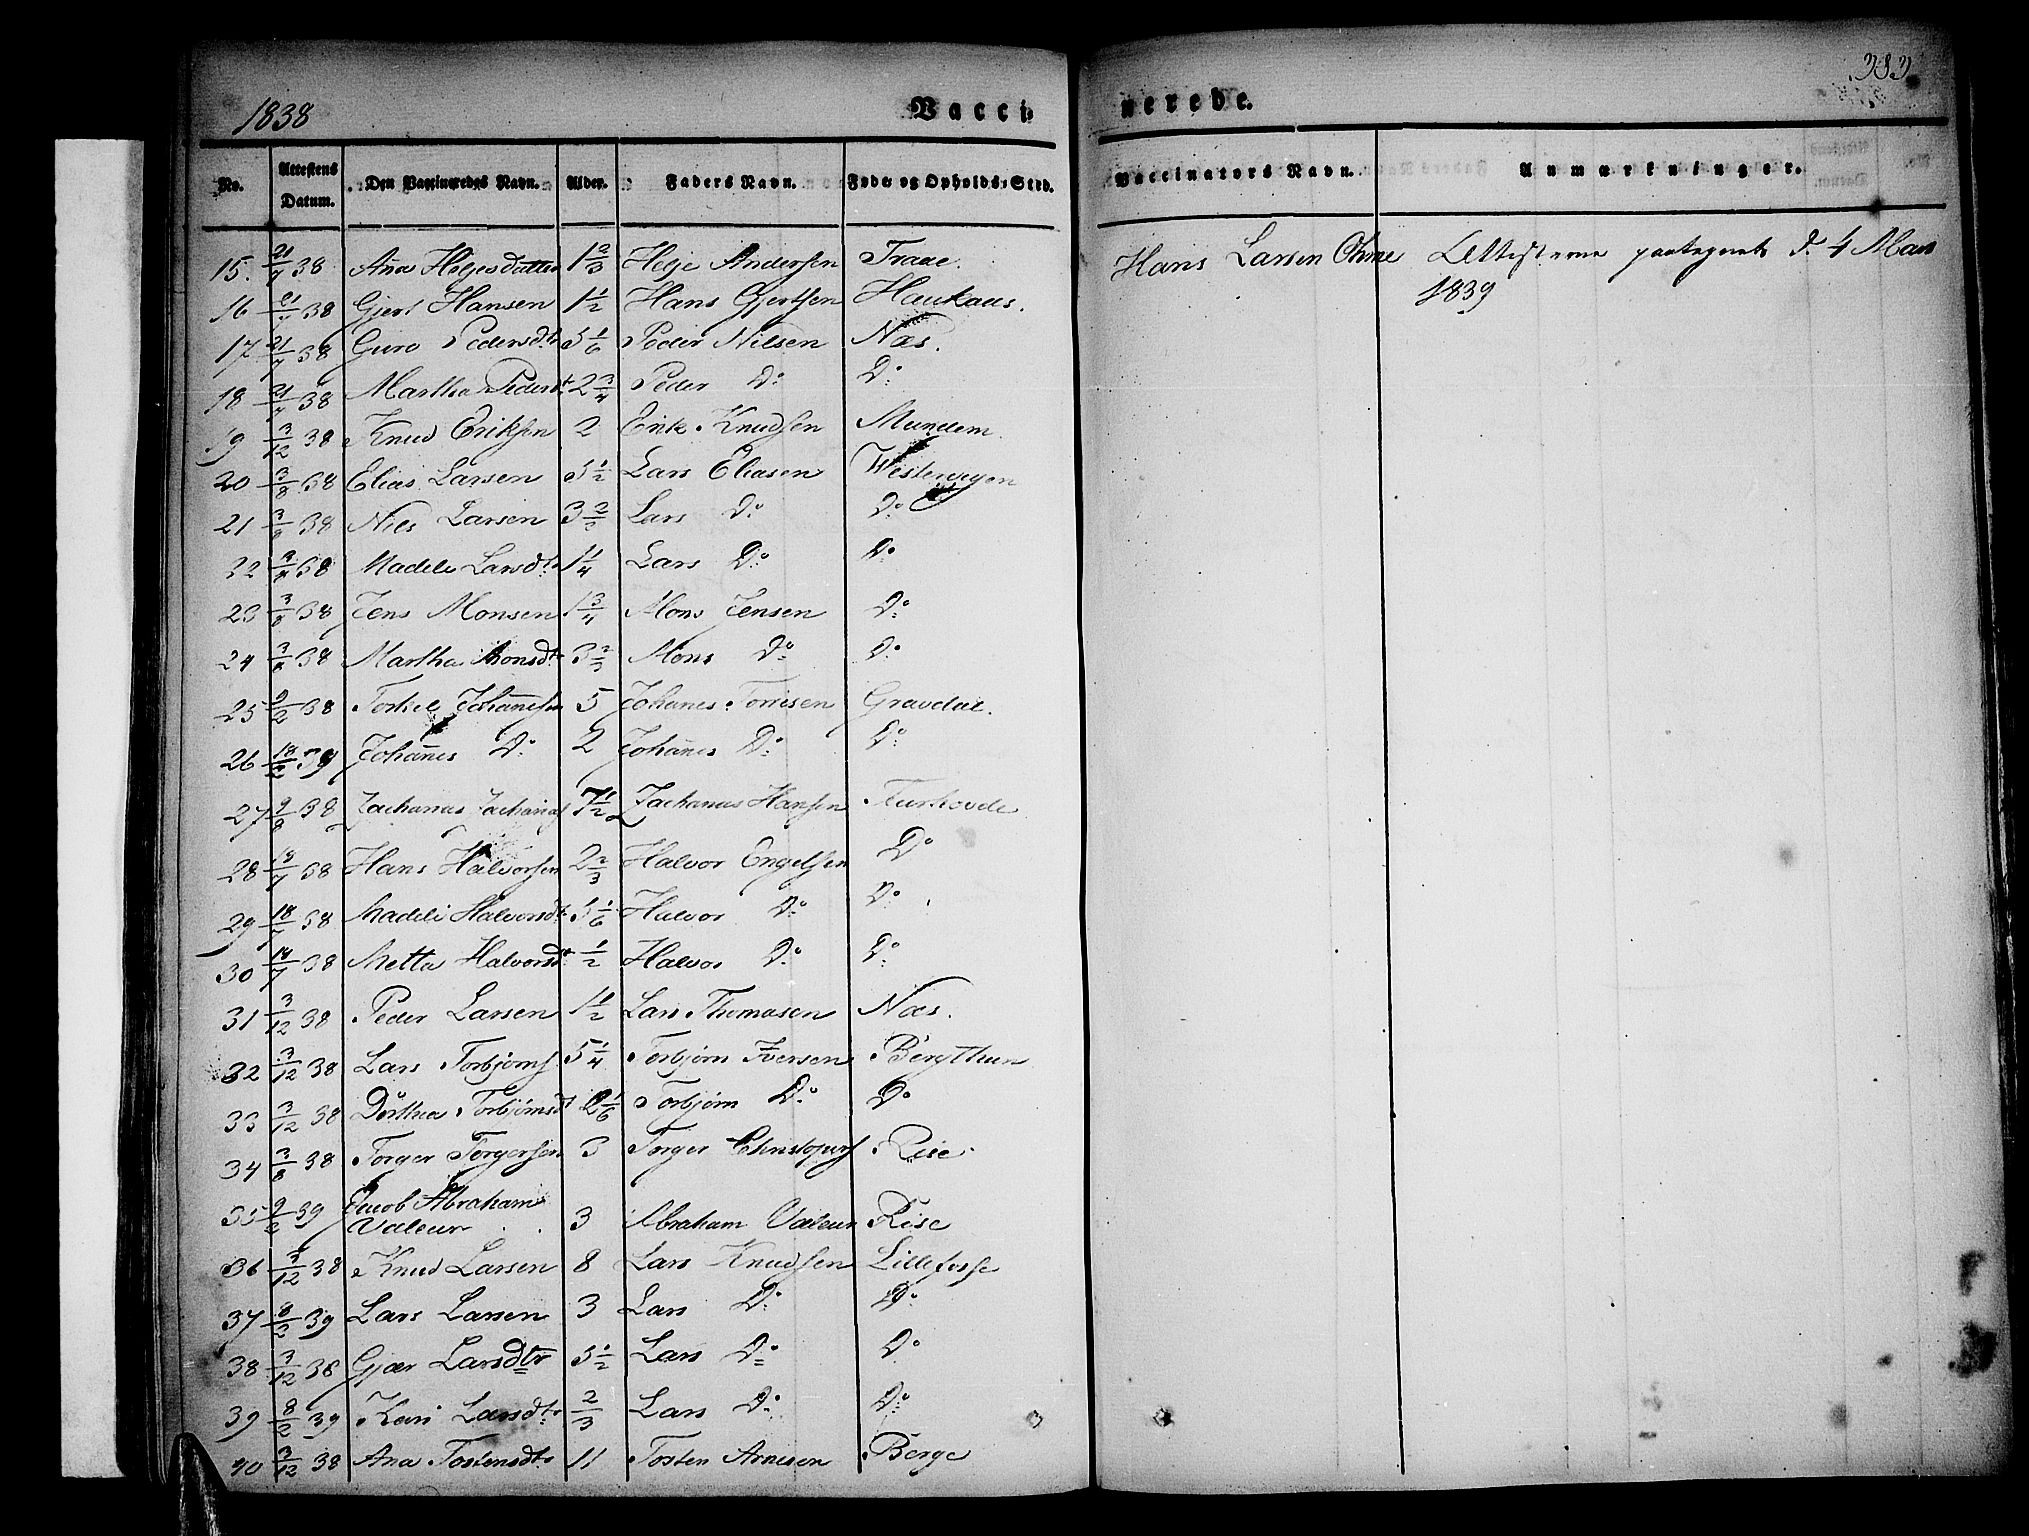 1838 Vacci nerede. 383
No. Attestens Datum. Den Vaccineredes Navn. Alder. Faders Navn. Føde- og Opholds-Sted. Vaccinators Navn. Anmærkninger.
15. 21/7 38 Ana Heljesdatter 1 2/3 Helje Andersen Traae. Hans Larsen Ohme Attesterne d. 4 Mars
1839
16 21/7 38 Gjert Hansen 1 1/2 Hans Gjertsen Haukaas.
17 21/7 38 Guro Pedersdtr 5 1/6 Peder Nilsen Næs.
18 21/7 38 Martha Pedersdt 2 3/4 Peder Do Do
19 3/12 38 Knud Eriksen 2 Erik Knudsen Mundem
20 3/8 38 Elias Larsen 5 1/2 Lars Eliasen
21 3/8 38 Niels Larsen 3 2/3 Lars Do Do
22 3/8 38 Madele Larsdtr 1 1/4 Lars Do Do
23 3/8 38 Jens Monsen 1 3/4 Mons Jensen Do
24 3/8 38 Martha Monsdtr 3 2/3 Mons Do Do
25 9/2 38 Torkel Johannesen 5 Johanes Torresen Gravdal.
26 18/2 39 Johannes Do 2 Johannes Do Do
27 9/8 38 Zacharias Zacharias 7 1/2 Zacharias Hansen Furhovde
28 18/7 38 Hans Halvorsen 2 2/3 Halvor Engelsen Do
29 18/7 38 Madele Halvorsdt 5 1/6 Halvor Do Do
30 18/7 38 Metta Halvorsdt 1/2 Halvor Do Do
31 3/12 38 Peder Larsen 1 1/2 Lars Thomasen Næs.
32 3/12 38 Lars Torbjørns 5 1/4 Torbjørn Iversen Bergthun
33 3/12 38 Dorthea Torbjørnsdt 2 1/6 Torbjørn Do Do
34 3/8 38 Torger Torgersen 3 Torger Christophers Rise
35 9/2 39 Jacob Abraham
Valeur 3 Abraham Valeur Rise
36 3/12 38 Knud Larsen 8 Lars Knudsen Lillefosse
37 8/2 39 Lars Larsen 3 Lars Do Do
38 3/12 38 Gjær Larsdtr 5 1/2 Lars Do Do
39 8/2 39 Kari Larsdtr 2/3 Lars Do Do
40 3/12 38 Ana Tostensdtr 11 Tosten Arnesen Berge